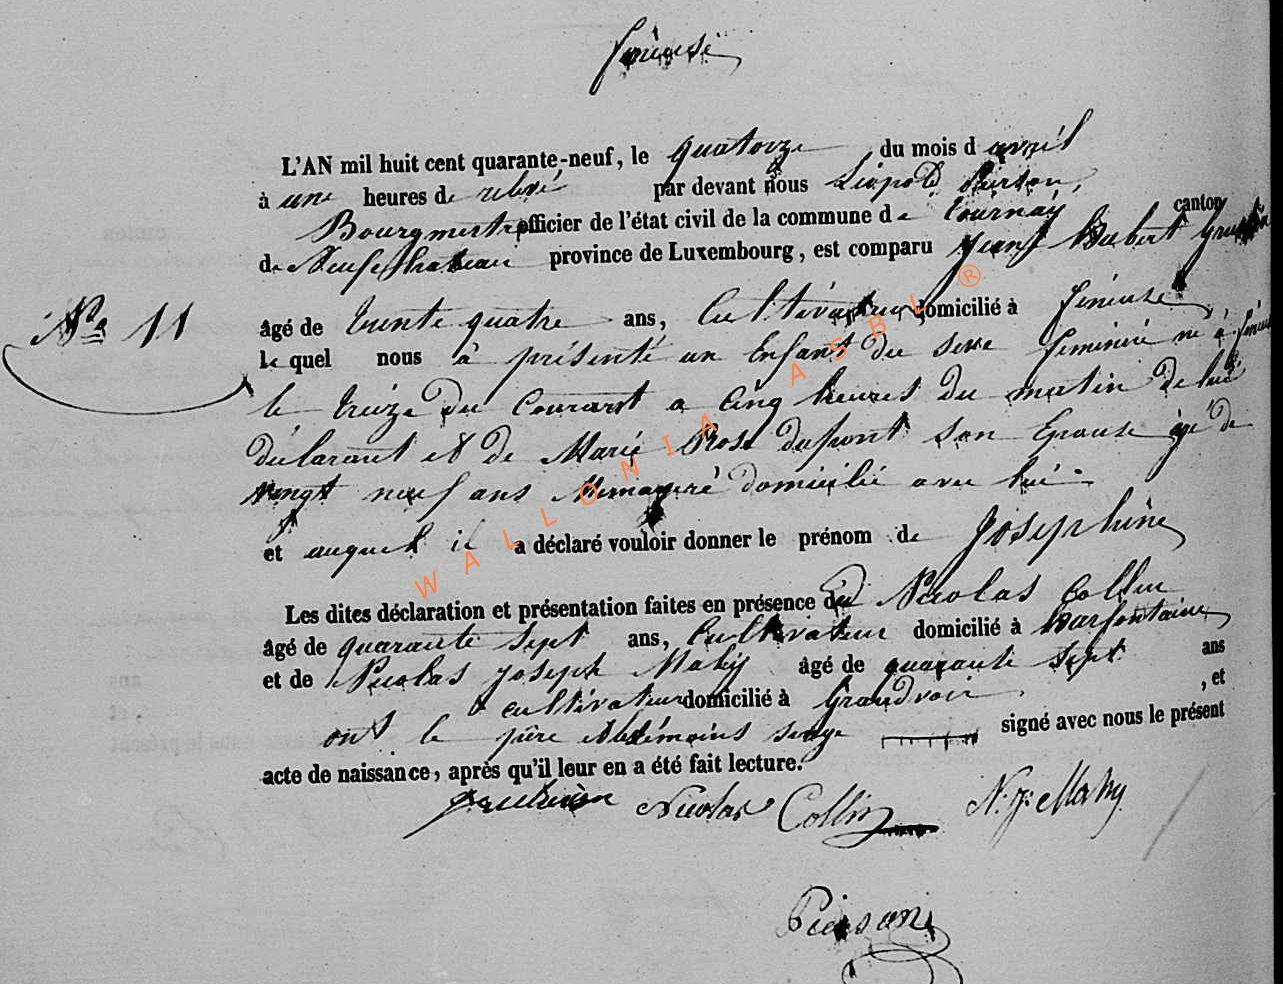 L'AN mil huit cent quarante-neuf, le quatorze du mois d avril
à une heures de relevé par devant nous Léopold Pierson,
Bourgmestre officier de l'état civil de la commune de tournay canton
de Neufchateau province de Luxembourg, est comparu Jean Hubert
N° 11
âgé de trente quatre ans, Cultivateur domicilié à
le quel nous à présenté un Enfant du sexe feminin né à
le treize du Courant a Cinq heures du matin de lui
déclarant et de Marie Rose dupont son Epouse agé de
vingt neuf ans Menagere domicilié avec lui
et auquel il a déclaré vouloir donner le prénom de Josephine
Les dites déclaration et présentation faites en présence de Nicolas Collin
âgé de quarante sept ans, Cultivateur domicilié à harfontaine
et de Nicolas Joseph Mahy âgé de quarante sept ans
cultivateur domicilié à Grandvoir , et
ont le père et témoins signé avec nous le présent
acte de naissance, après qu'il leur en a été fait lecture.
Nicolas Collin N. J. Mahy
Pierson
WALLONIA ASBL ®